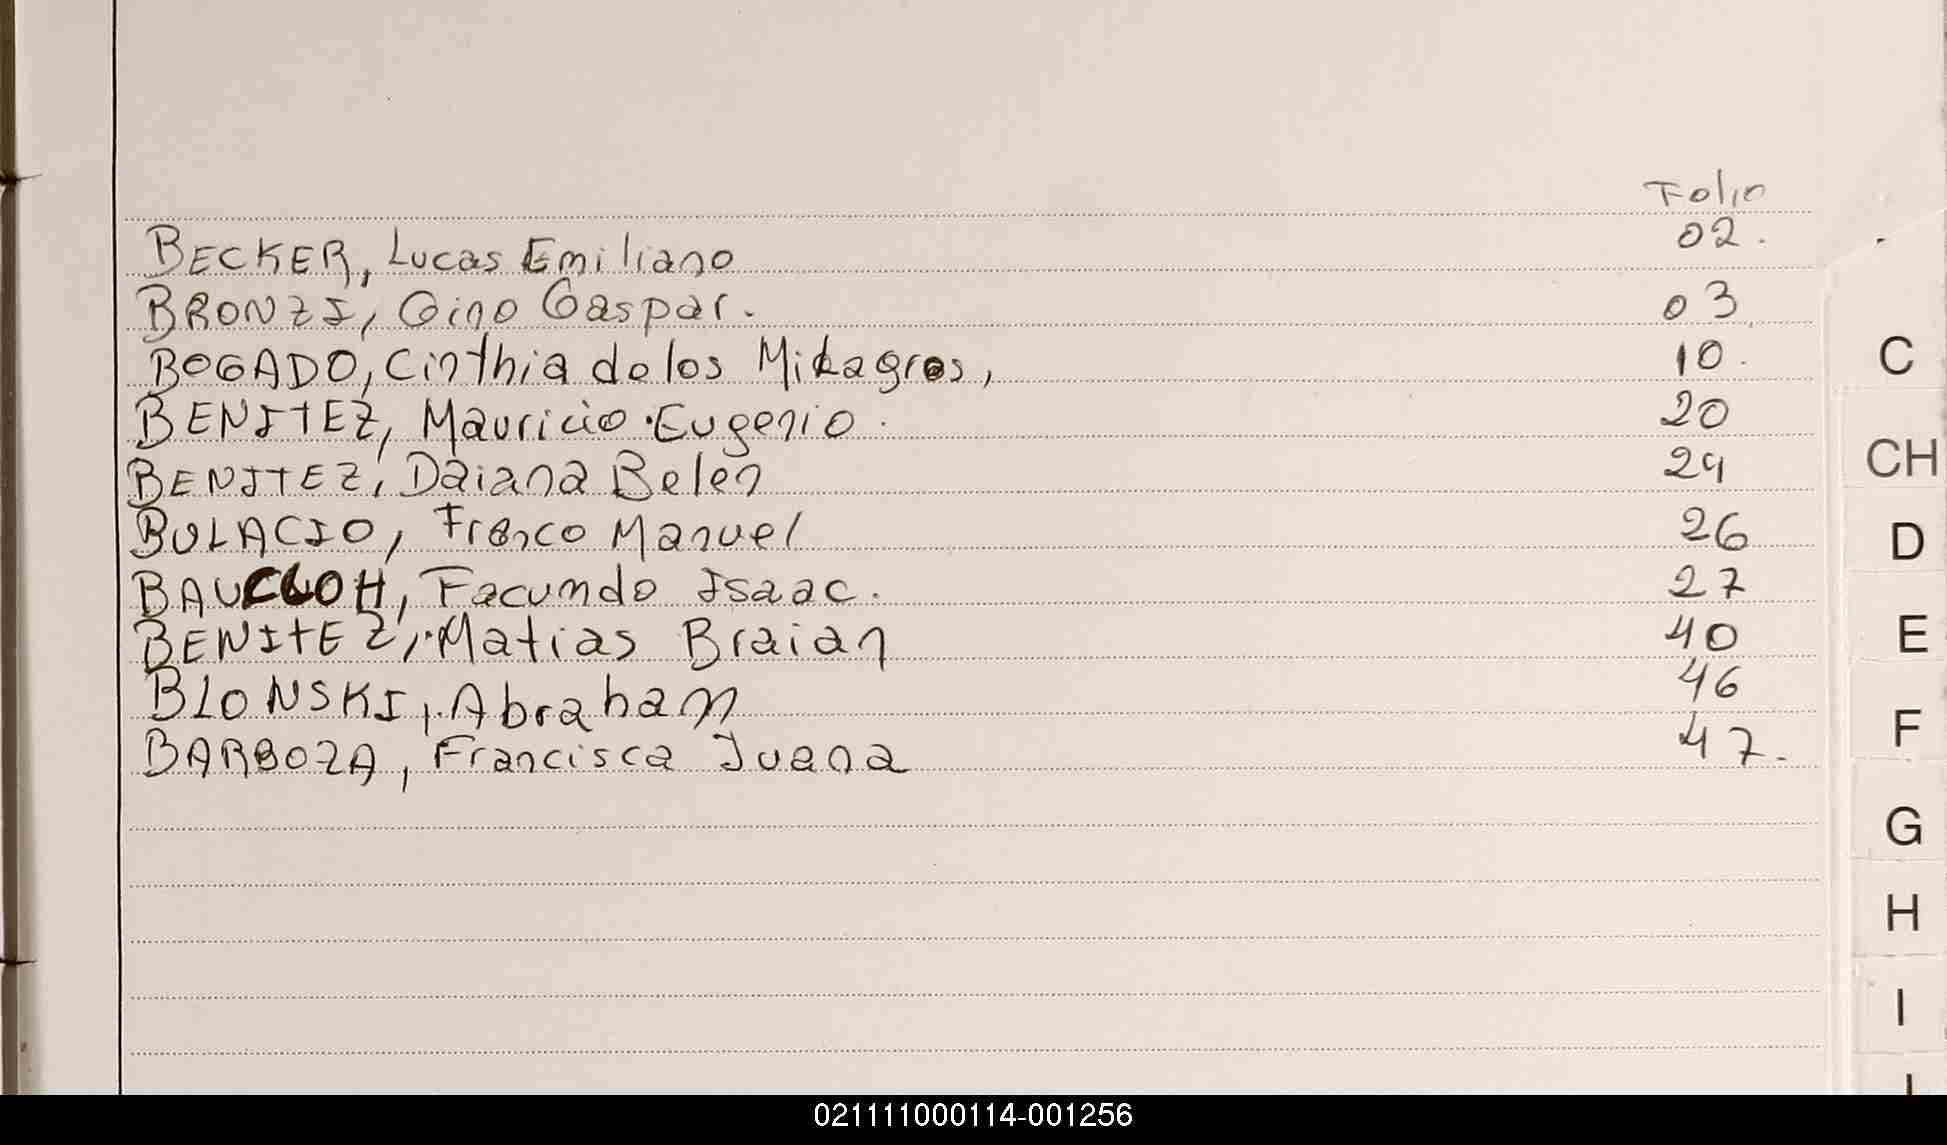 Folio
BECKER, Lucas Emiliano 02.
BRONZI, Gino Gaspar. 03
BOGADO, Cinthia de los Milagros, 10.
BENITEZ, Mauricio Eugenio. 20
BENITEZ, Daiana Belen 24
BULACIO, Franco Manuel 26
BAUCLOH, Facundo Isaac. 27
BENITEZ, Matias Braian 40
BLONSKI, Abraham 46
BARBOZA, Francisca Juana 47.
C
CH
D
E
F
G
H
I
021111000114-001256